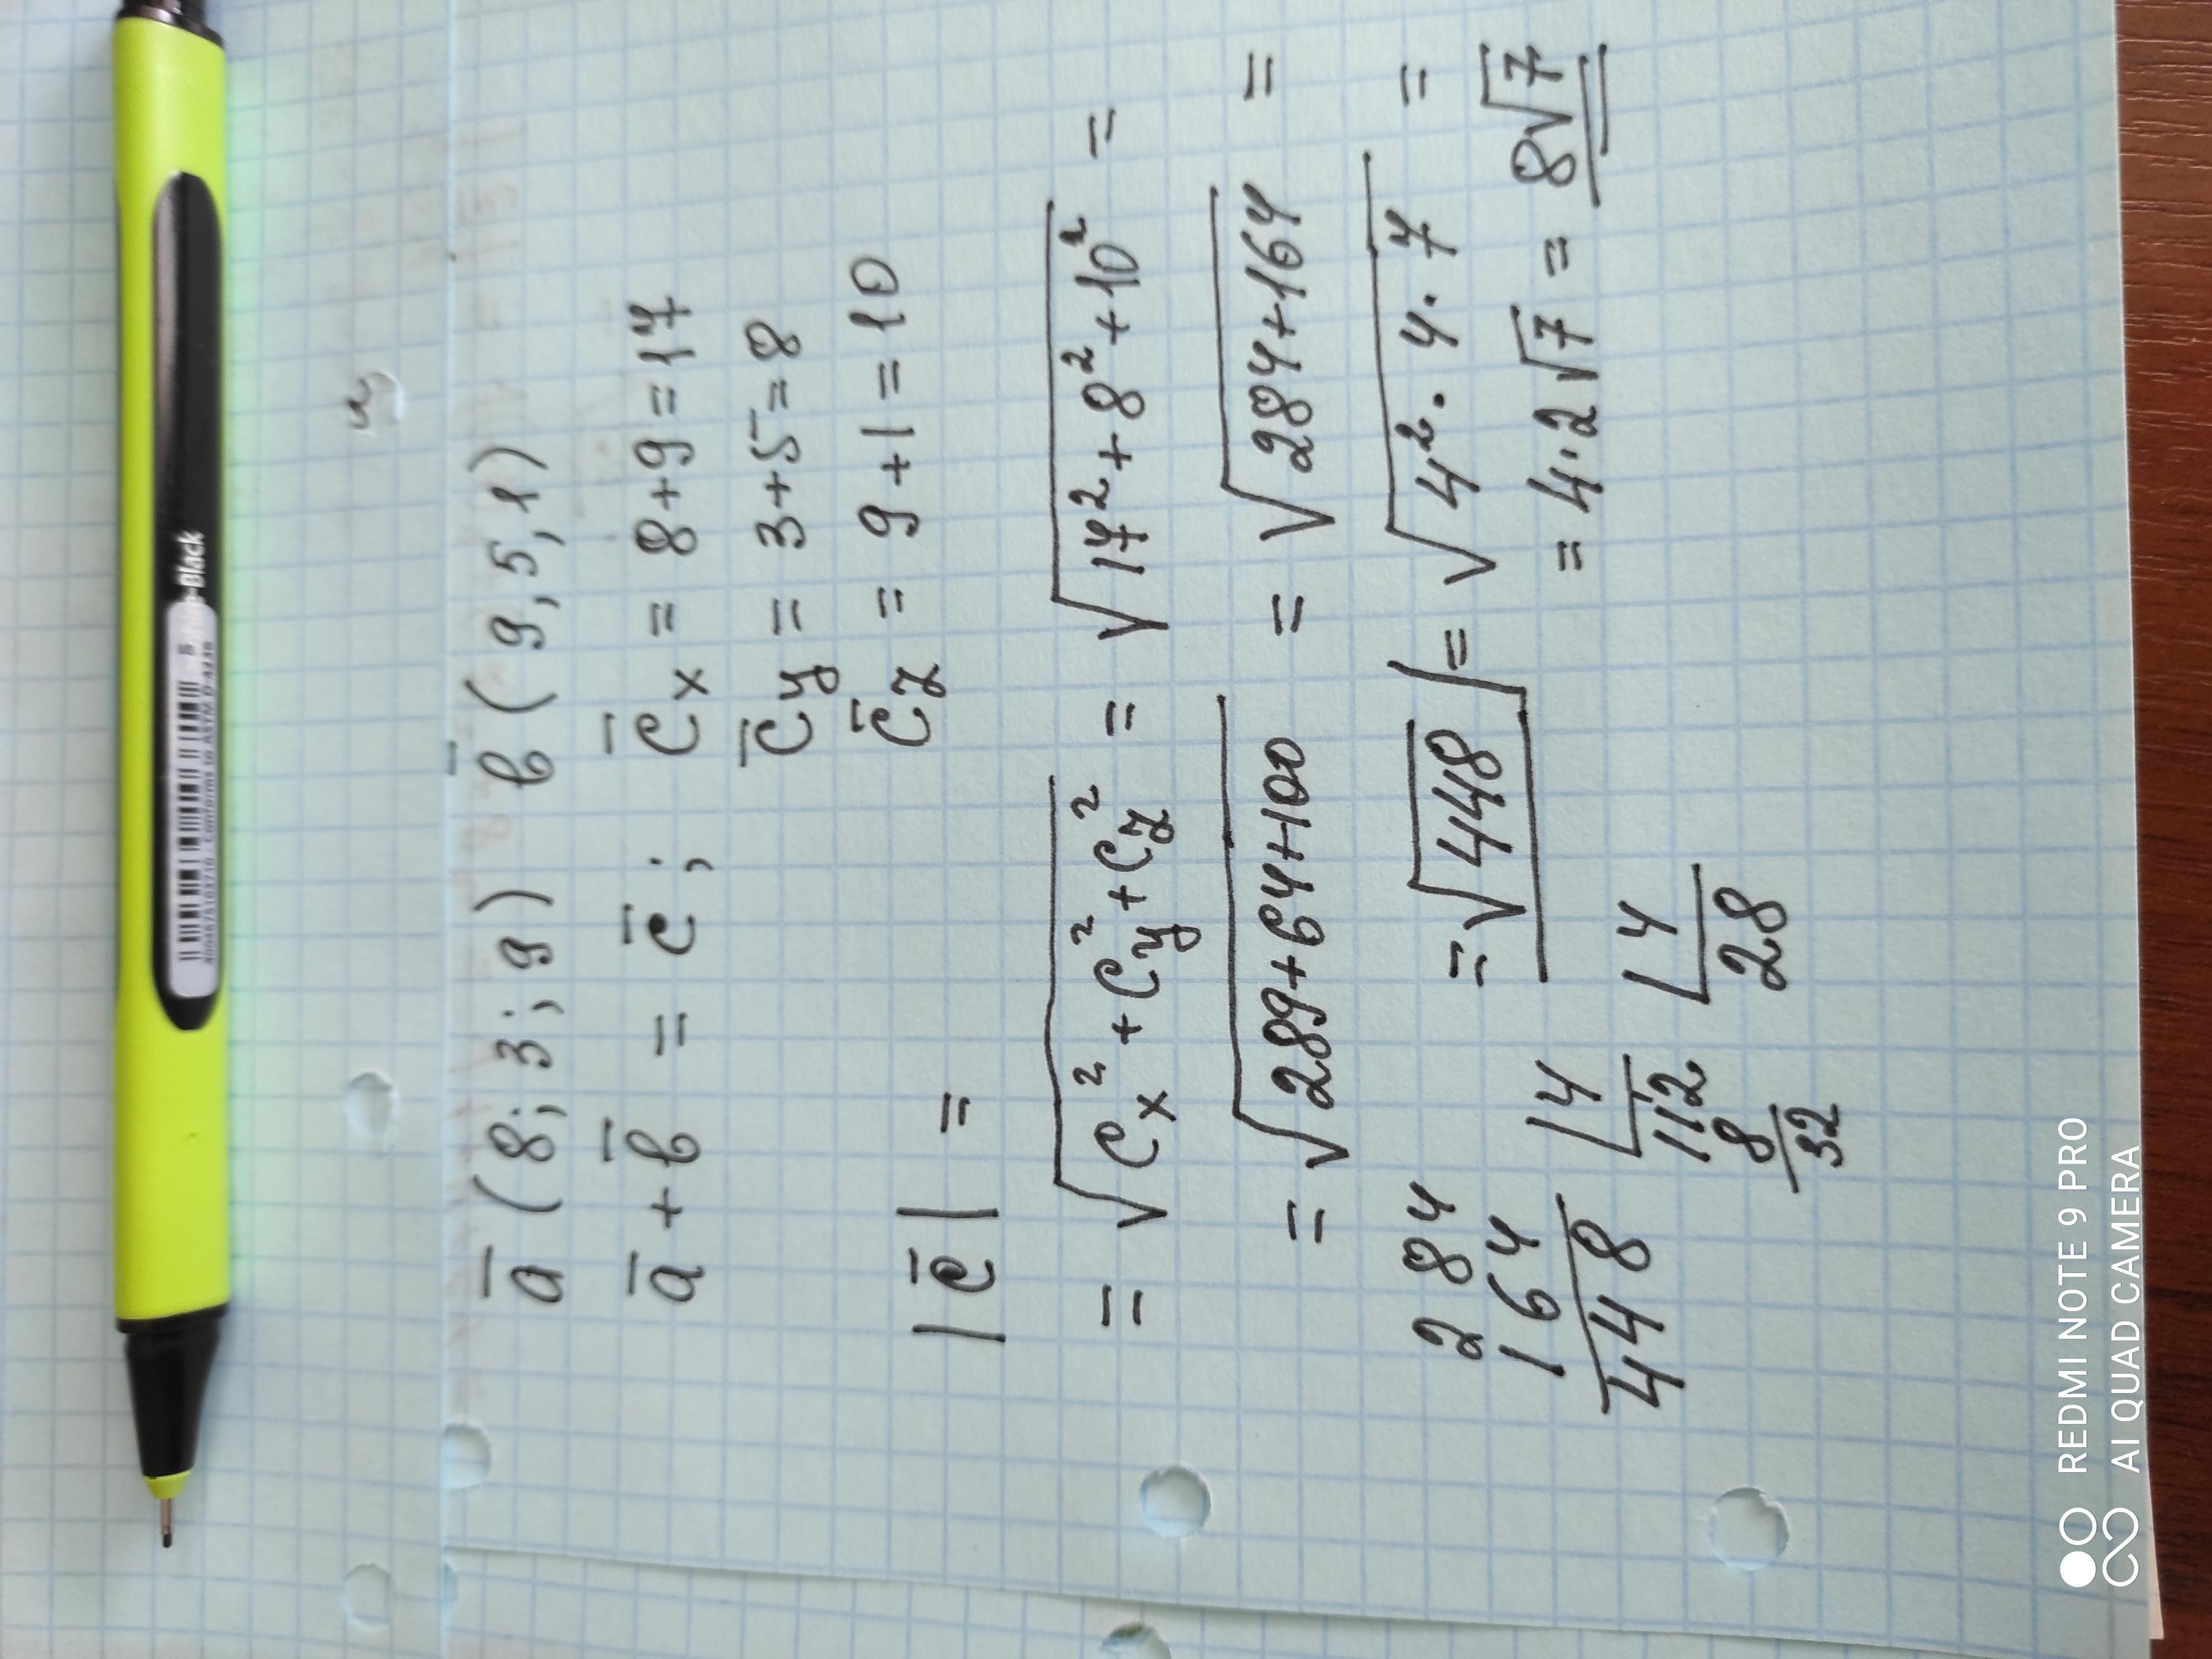 a̅ (8; 3; 9) b̅ (9, 5, 1)
a̅ + b̅ = c̅; c̅x = 8+9=17
c̅y = 3+5=8
c̅z = 9+1=10
|c̅| =
= √(cx² + cy² + cz²) = √(17² + 8² + 10²) =
= √(289+64+100) = √(284+164) =
= √448 = √(4²·4·7) =
= 4·2√7 = 8√7
284
164
448
4
112
8
32
4
28
-Black
REDMI NOTE 9 PRO
AI QUAD CAMERA